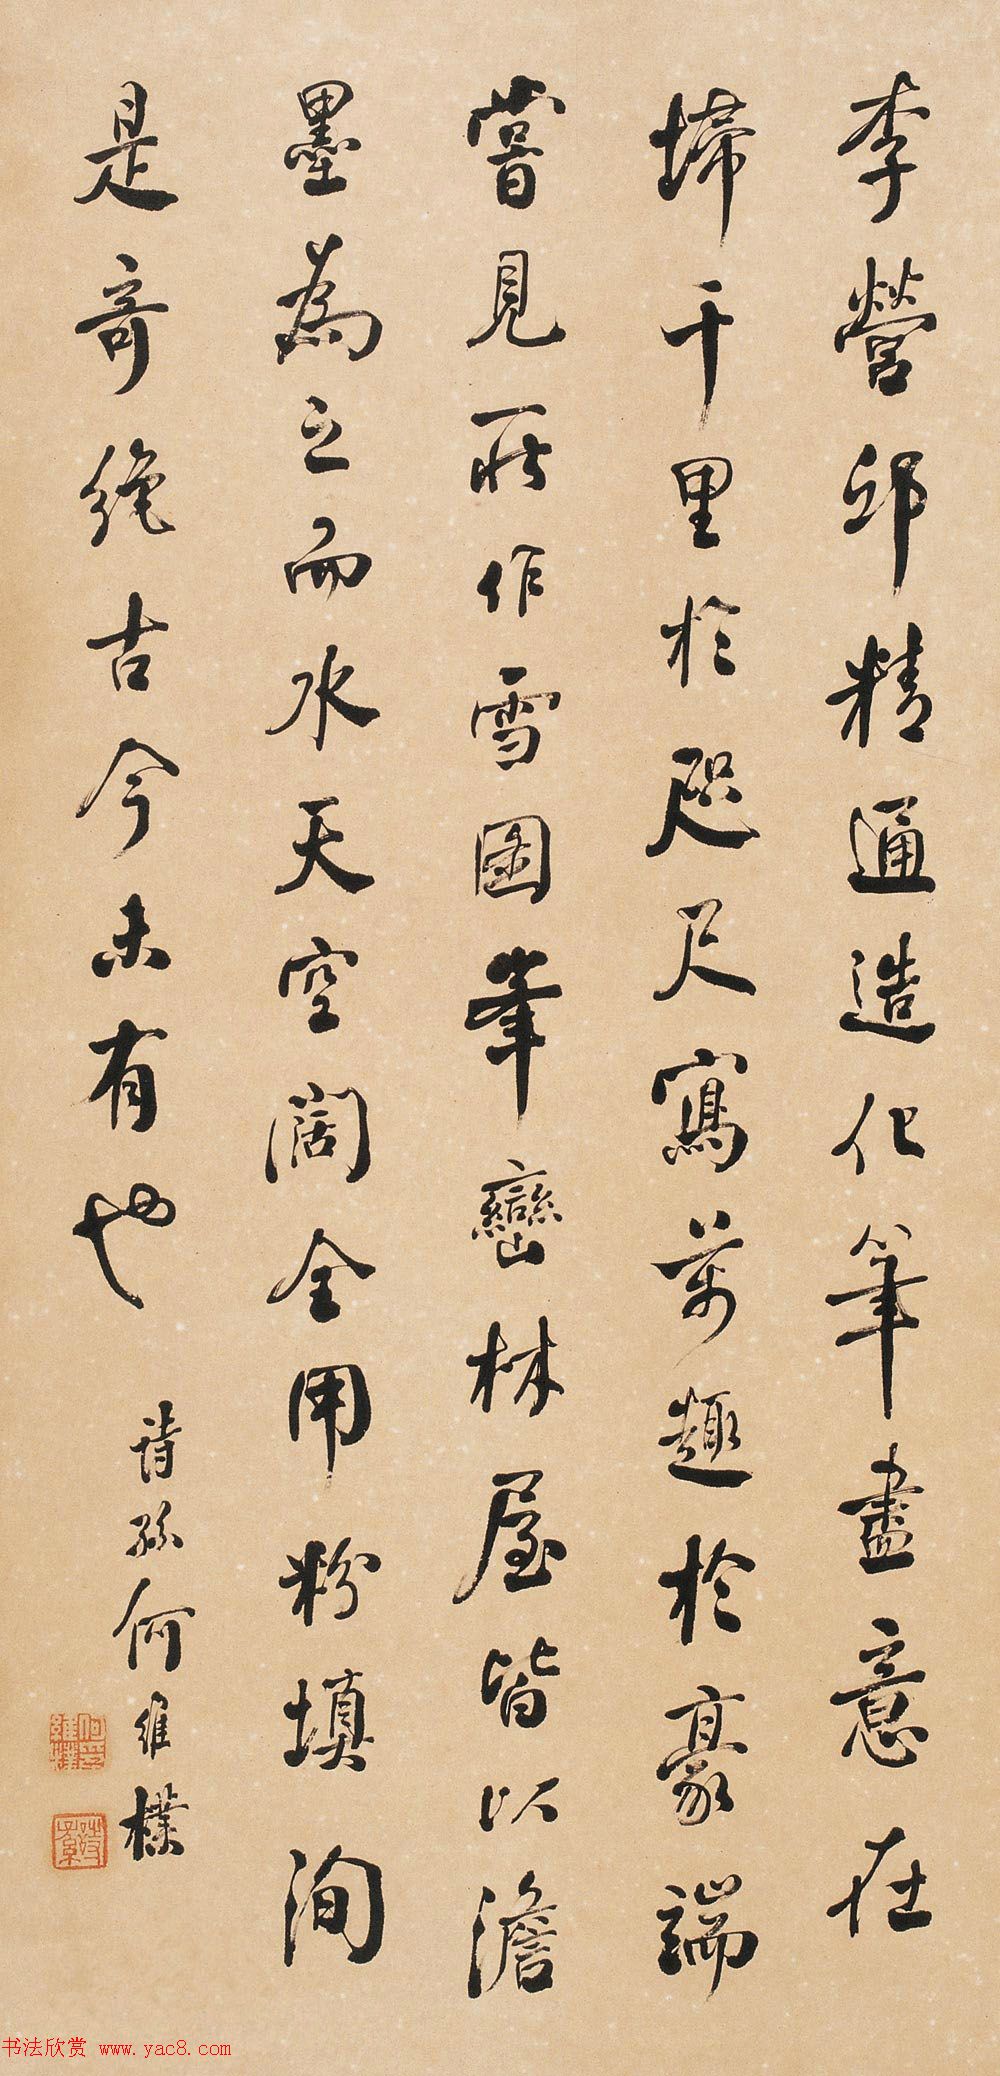 李營邱精通造化筆盡意在
埽千里於咫尺寫萬趣於豪端
嘗見所作雪圖峯巒林屋皆以澹
墨為之而水天空闊全用粉填洵
是奇絶古今未有也
詩孫何維樸
何維樸印
詩孫
书法欣赏 www.yac8.com